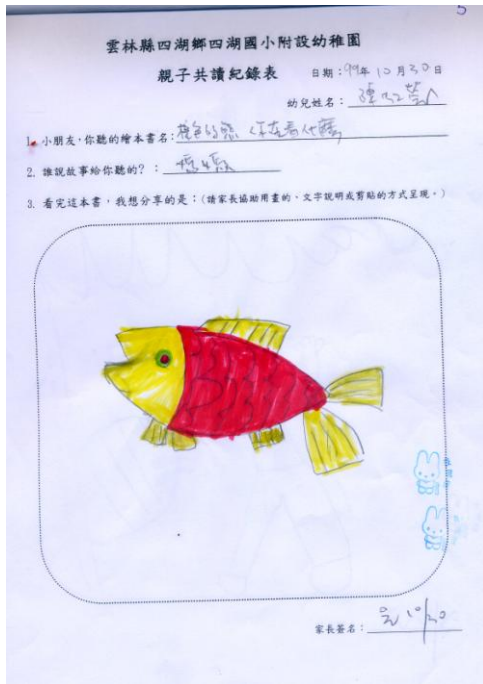 5
雲林縣四湖鄉四湖國小附設幼稚園
親子共讀紀錄表
日期：99年10月30日
幼兒姓名：
1. 小朋友，你聽的繪本書名：棕色的熊 你在看什麼
2. 誰說故事給你聽的？：媽媽
3. 看完這本書，我想分享的是：(請家長協助用畫的、文字說明或剪貼的方式呈現。)
家長簽名： 10/30